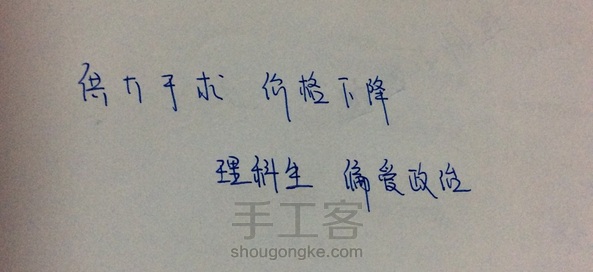 供大于求 价格下降
理科生 偏爱政治
手工客
shougongke.com